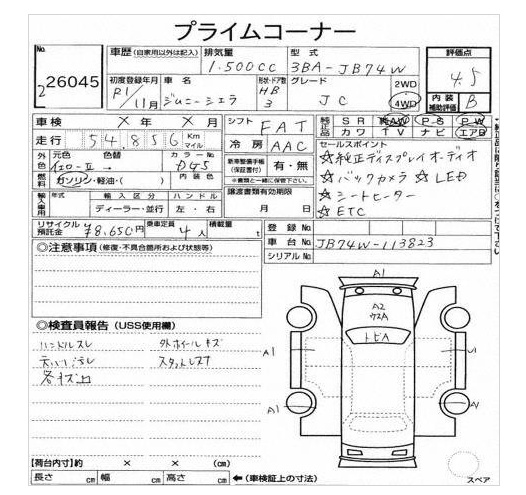 プライムコーナー
No. 26045
車歴 (自家用以外は記入) 排気量 1.500CC 型式 3BA-JB74W 評価点 4.5
初度登録年月 R1/11月 車名 ジムニーシエラ 形状・ドア数 HB 3 グレード JC 2WD 4WD 内装補助評価 B
車検 × 年 × 月 シフト FAT 純正品 SR AW P-S P-W
カワ TV ナビ エアB
走行 54,856 Km マイル 冷房 AAC セールスポイント
外色 元色 色替 カラーNo.
新車整備手帳(保証書付) 有・無
※書類と一緒に保管下さい
☆純正ディスプレイオーディオ
☆バックカメラ ☆LED
☆シートヒーター
☆ETC
燃料 ガソリン・軽油・( ) 内装色
輸入車用 年式 輸入区分 ハンドル 譲渡書類有効期限
ディーラー・並行 左・右 月 日
リサイクル預託金 ¥8,650円 乗車定員 4人 積載量 t
登録No.
車台No. JB74W-113823
シリアルNo.
◎注意事項 (修復・不具合箇所および状態等)
◎検査員報告 (USS使用欄)
ハンドルスレ 外ホイールキズ
各キズ凹
A1
A2
トビA
A1
A1
【荷台内寸】約 × × (cm)
長さ cm 幅 cm 高さ cm ←(車検証上の寸法)
スペア